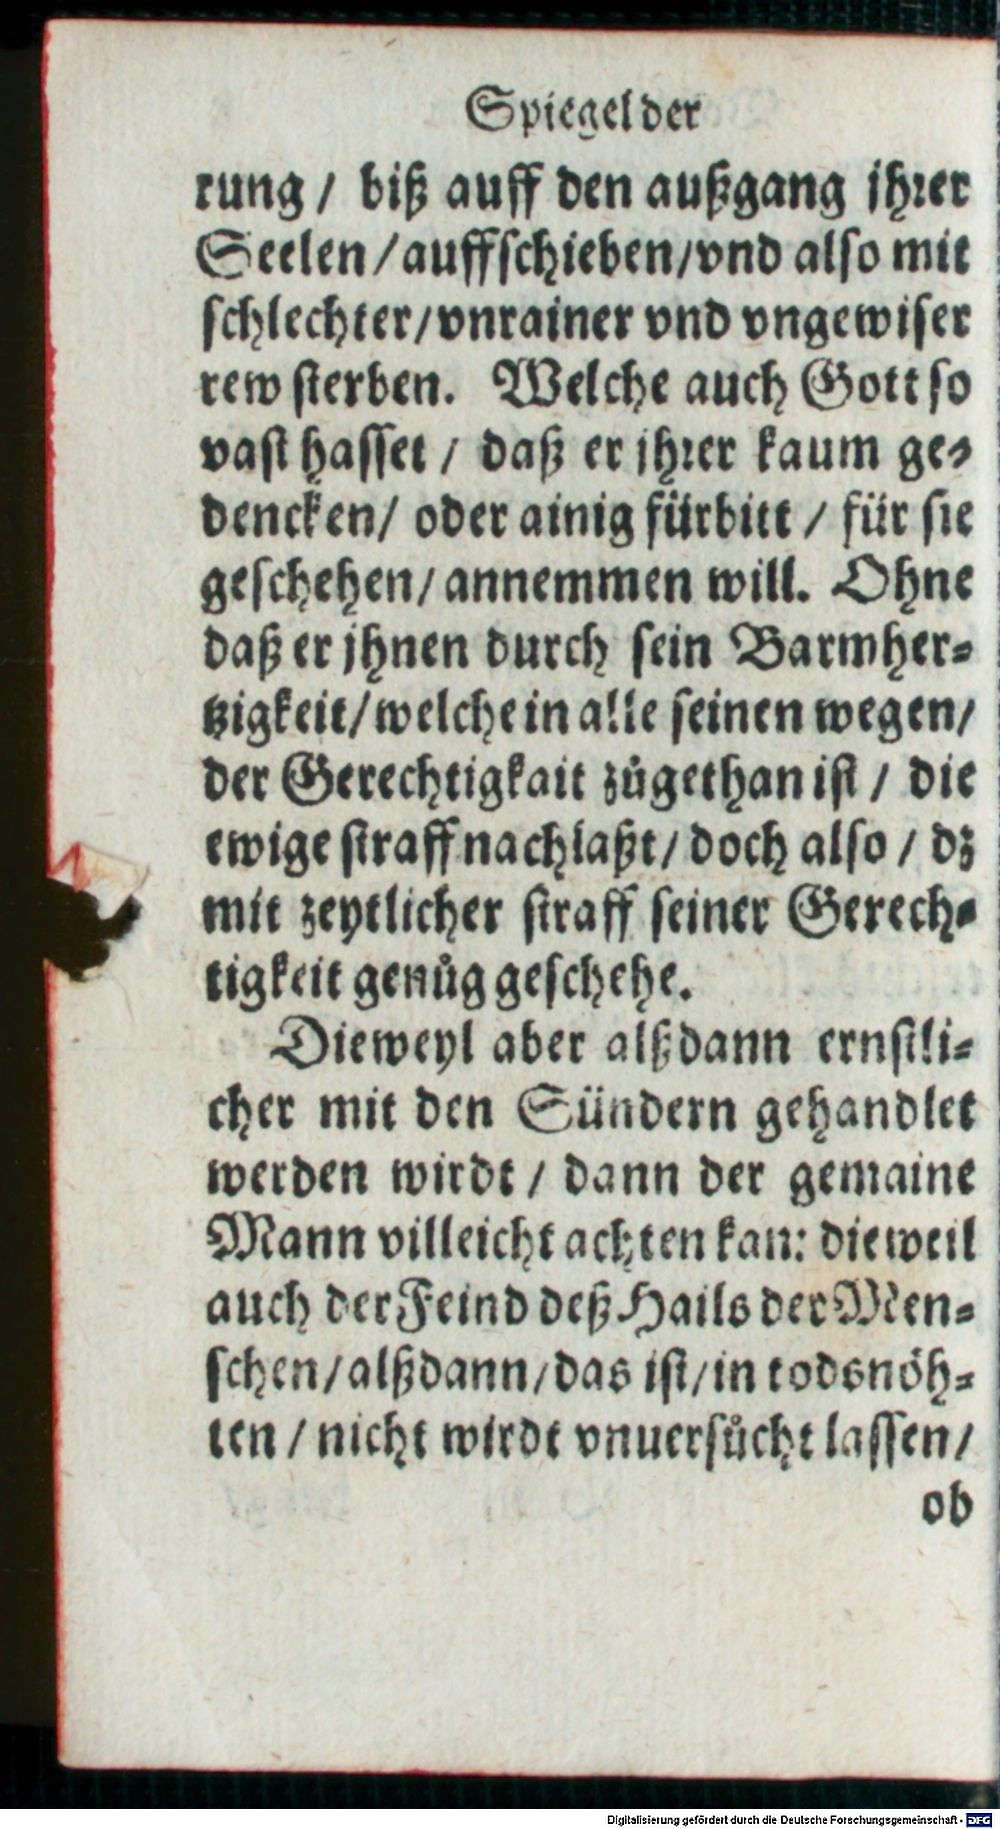 Spiegel der
rung / biß auff den außgang jhrer
Seelen / auffschieben / vnd also mit
schlechter / vnrainer vnd vngewiser
rew sterben. Welche auch Gott so
vast hasset / daß er jhrer kaum ge-
dencken / oder ainig fürbitt / für sie
geschehen / annemmen will. Ohne
daß er jhnen durch sein Barmher-
tzigkeit / welche in alle seinen wegen /
der Gerechtigkait zůgethan ist / die
ewige straff nachlaßt / doch also / dz
mit zeytlicher straff seiner Gerech-
tigkeit genůg geschehe.
Dieweyl aber alßdann ernstli-
cher mit den Sündern gehandlet
werden wirdt / dann der gemaine
Mann villeicht achten kan: dieweil
auch der Feind deß Hails der Men-
schen / alßdann / das ist / in todsnöh-
ten / nicht wirdt vnuersůcht lassen /
ob
Digitalisierung gefördert durch die Deutsche Forschungsgemeinschaft - DFG